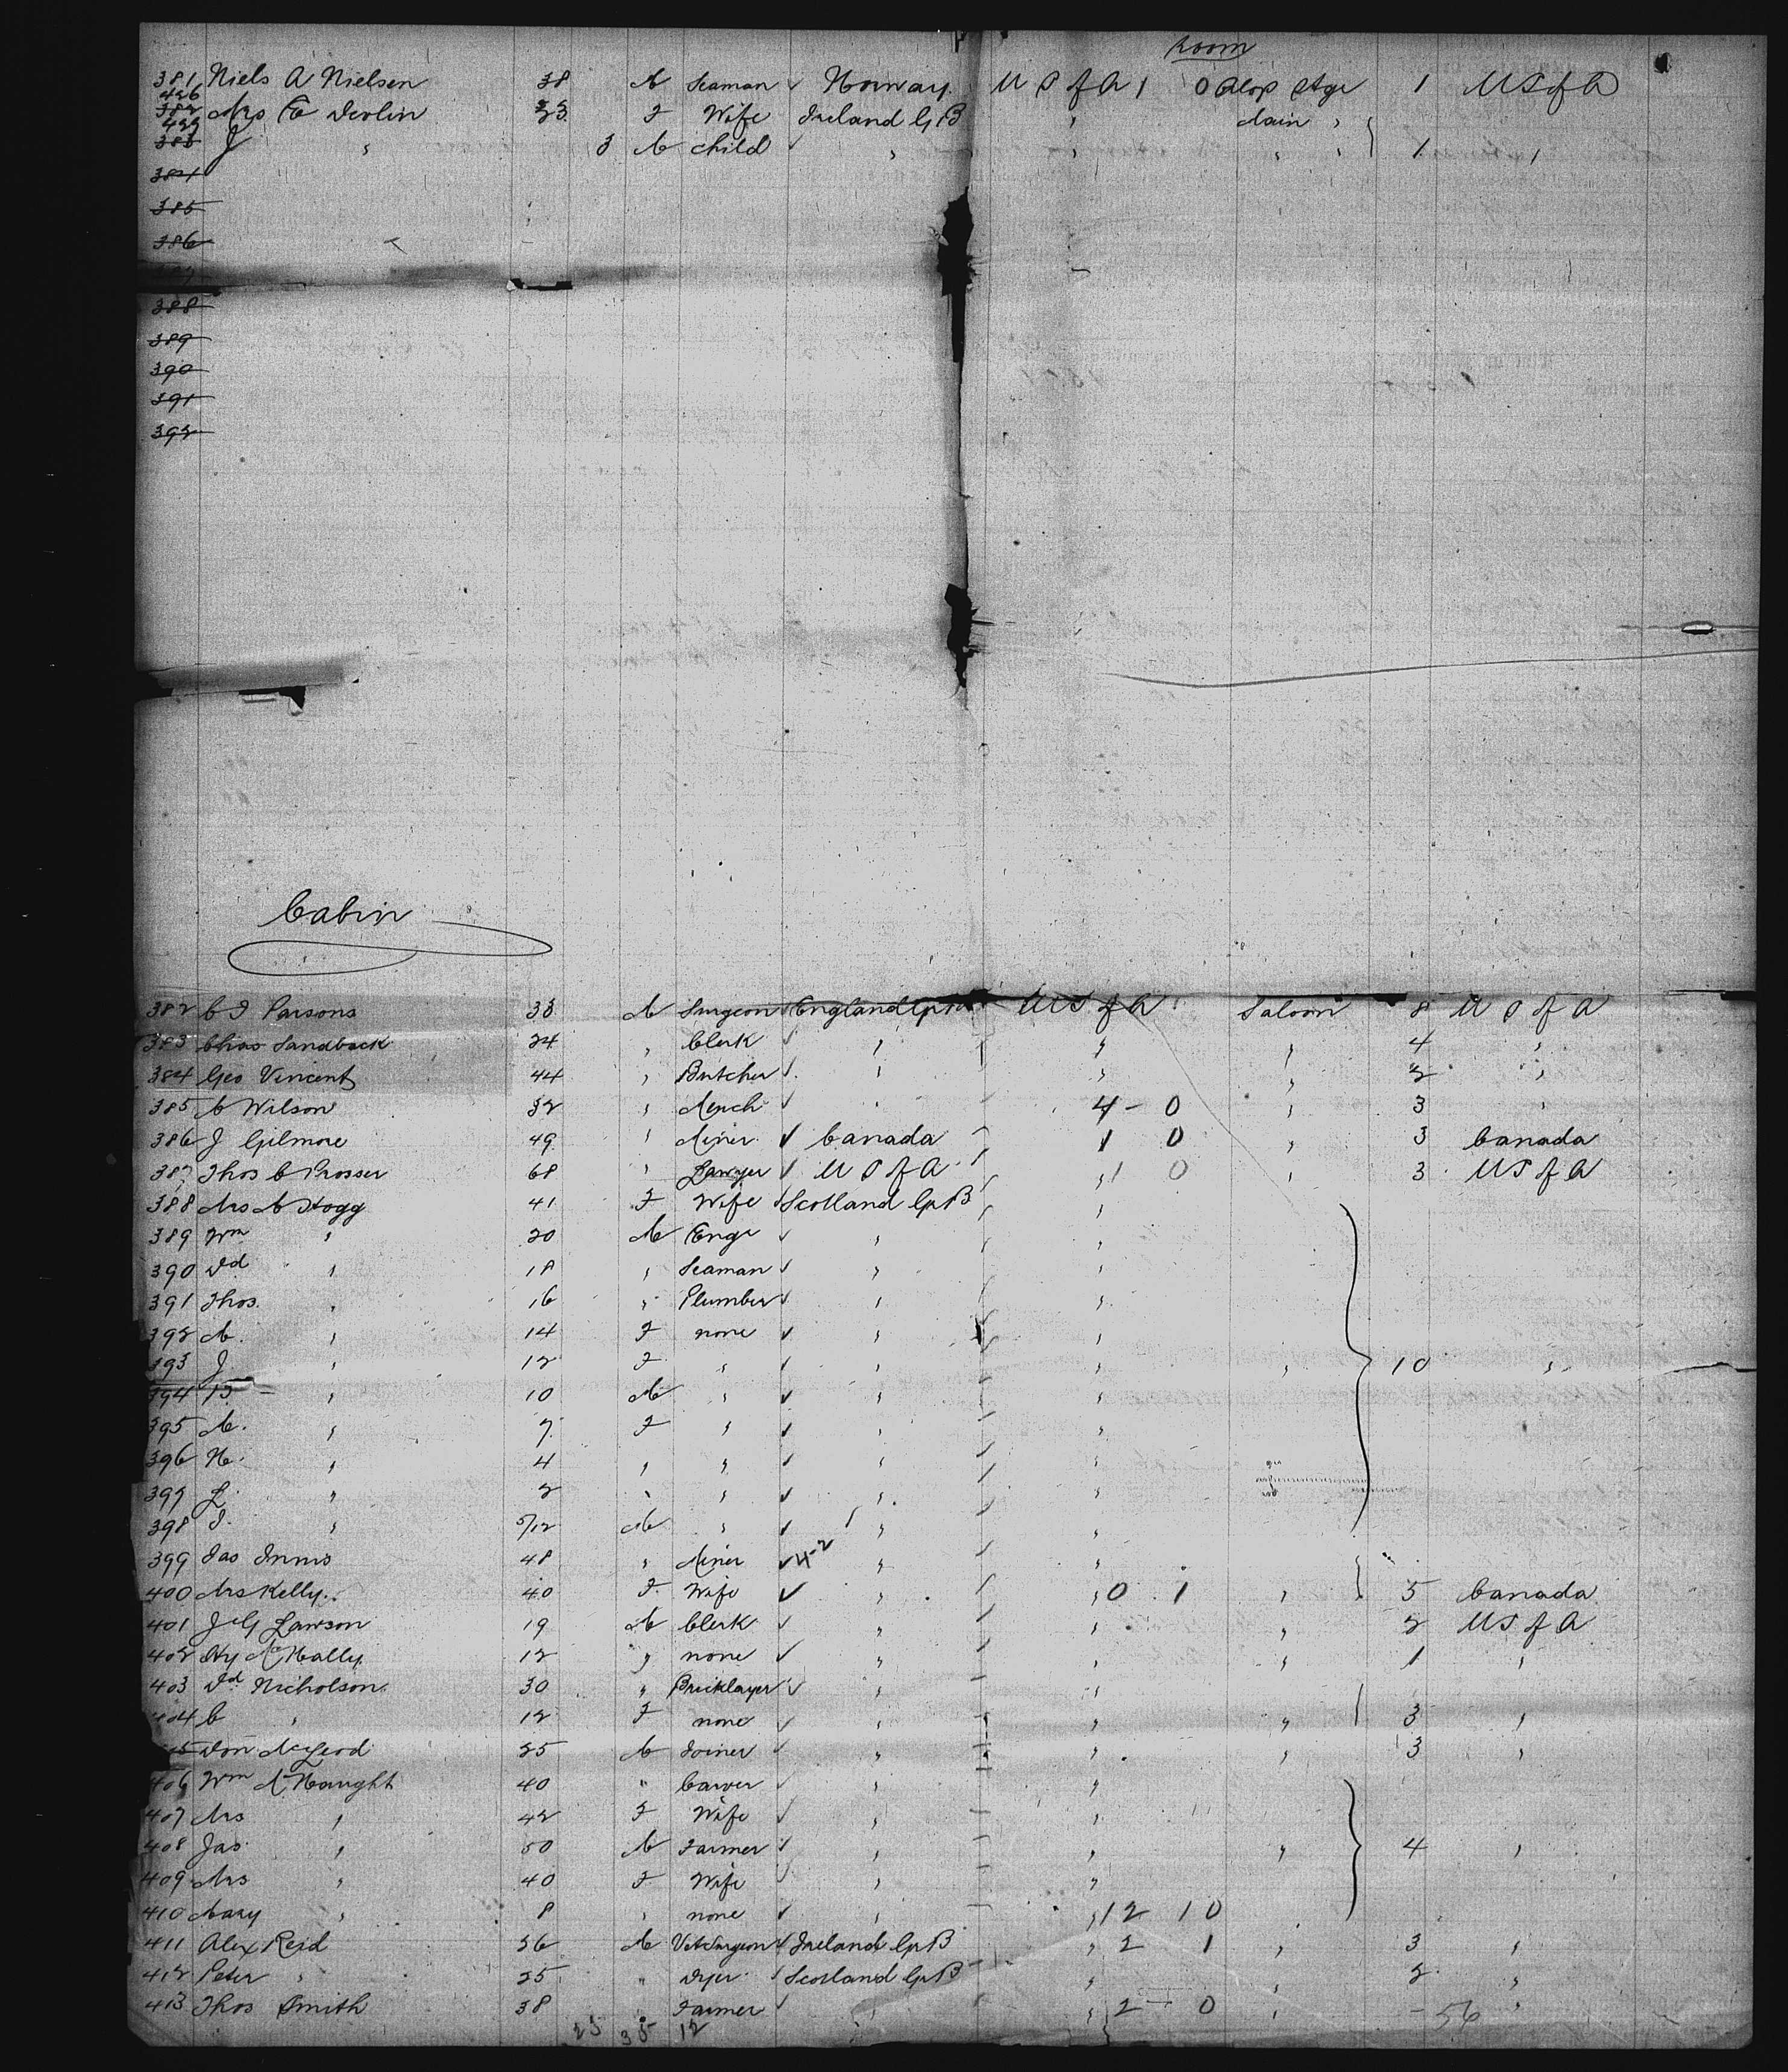 Room
381 Niels A Nielsen 38 M Seaman ✓ Norway. U S of A 1 0 Stge 1 U S of A
426 382 Mrs E Devlin 23 F Wife Ireland G B " Main "
427 383 J " 3 M Child ✓ " " " " 1 "
384
385
386
388
389
390
391
392
Cabin
382 C F Parsons 33 M Surgeon England G B U S of A Saloon 8 U S of A
383 Chas Sandback 24 " Clerk ✓ " " " 4 "
384 Geo Vincent 44 " Butcher ✓ " " " 2 "
385 M Wilson 32 " Merch ✓ " " 4 - 0 " 3 "
386 J Gilmore 49 " Miner ✓ Canada 1 0 " 3 Canada
387 Thos C Prosser 68 " Lawyer ✓ U S of A " 1 0 " 3 U S of A
388 Mrs M Hogg 41 F Wife ✓ Scotland G B "
389 Wm " 20 M Engr ✓ " "
390 Dd " 18 " Seaman ✓ " "
391 Thos. " 16 " Plumber ✓ " "
392 M. " 14 F none ✓ " "
393 J " 12 F " ✓ " " " 10 "
394 B " 10 M " ✓ " "
395 M. " 7 F " ✓ " "
396 N. " 4 " " ✓ " "
397 L " 2 " " ✓ " "
398 " 5/12 M " ✓ " "
399 Jas Innis 48 " Miner ✓ 4-2 " "
400 Mrs Kelly. 40 F Wife ✓ " " 0 1 " 5 Canada
401 J G Lawson 19 M Clerk ✓ " " " 2 U S of A
402 Hy McNally 12 " none ✓ " " " 1 "
403 Dd Nicholson 30 " Bricklayer ✓ " "
404 C " 12 F none ✓ " " " 3 "
5 Don McLeod 25 M Joiner ✓ " " " 3 "
406 Wm McNaught 40 " Carver ✓ " "
407 Mrs " 42 F Wife ✓ " "
408 Jas " 50 M Farmer ✓ " " " 4 "
409 Mrs " 40 F Wife ✓ " "
410 Mary " 8 " none ✓ " " 12 10
411 Alex Reid 36 M Vet Surgeon ✓ Ireland G B " 2 1 " 3 "
412 Peter " 25 " Dyer ✓ Scotland G B " " 2 "
413 Thos Smith 38 " Farmer ✓ " " 2 - 0 " - "
23 35 12 56